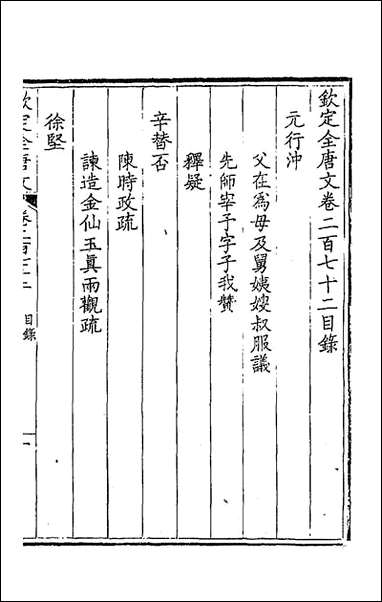 欽定全唐文卷二百七十二目錄
元行沖
父在爲母及舅姨嫂叔服議
先師宰予字子我贊
釋疑
辛替否
陳時政疏
諫造金仙玉眞兩觀疏
徐堅
欽定全唐文
目錄
一